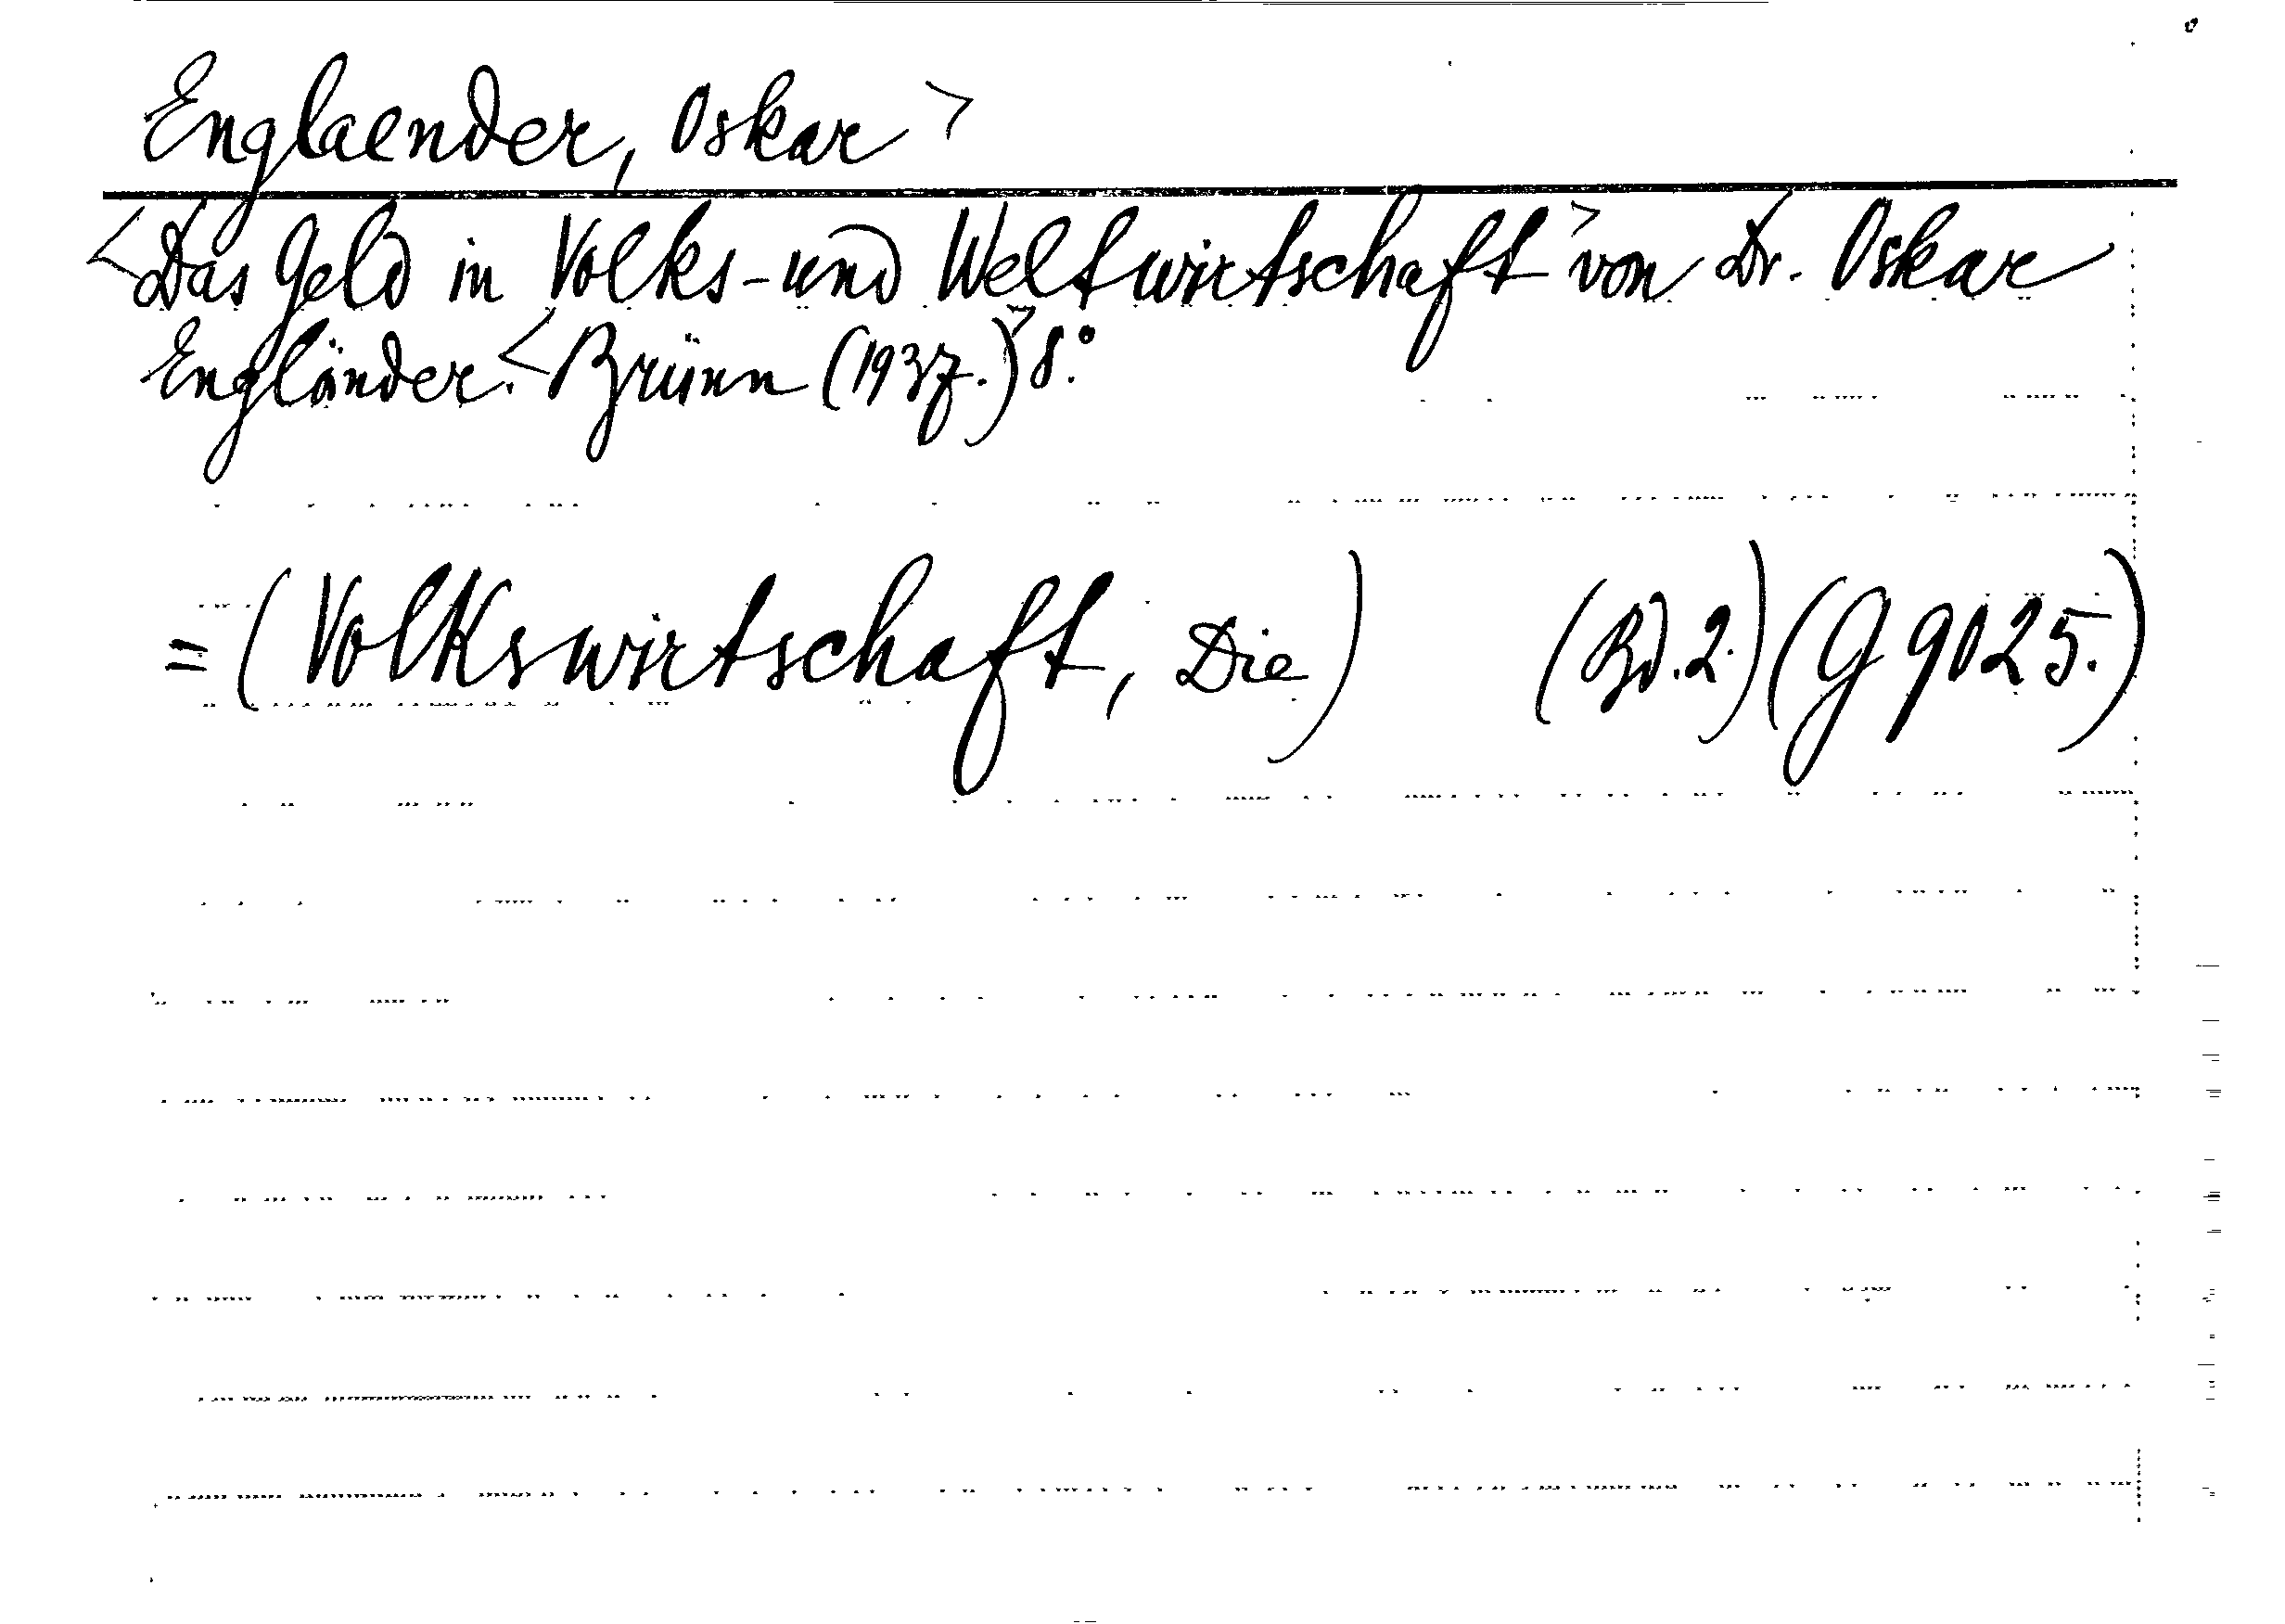 Englaender, Oskar >
<Das Geld in Volks- und Weltwirtschaft> von Dr. Oskar
Engländer. <Brünn (1937.)> 8.°
= (Volkswirtschaft, Die) (Bd. 2.) (G 9025.)